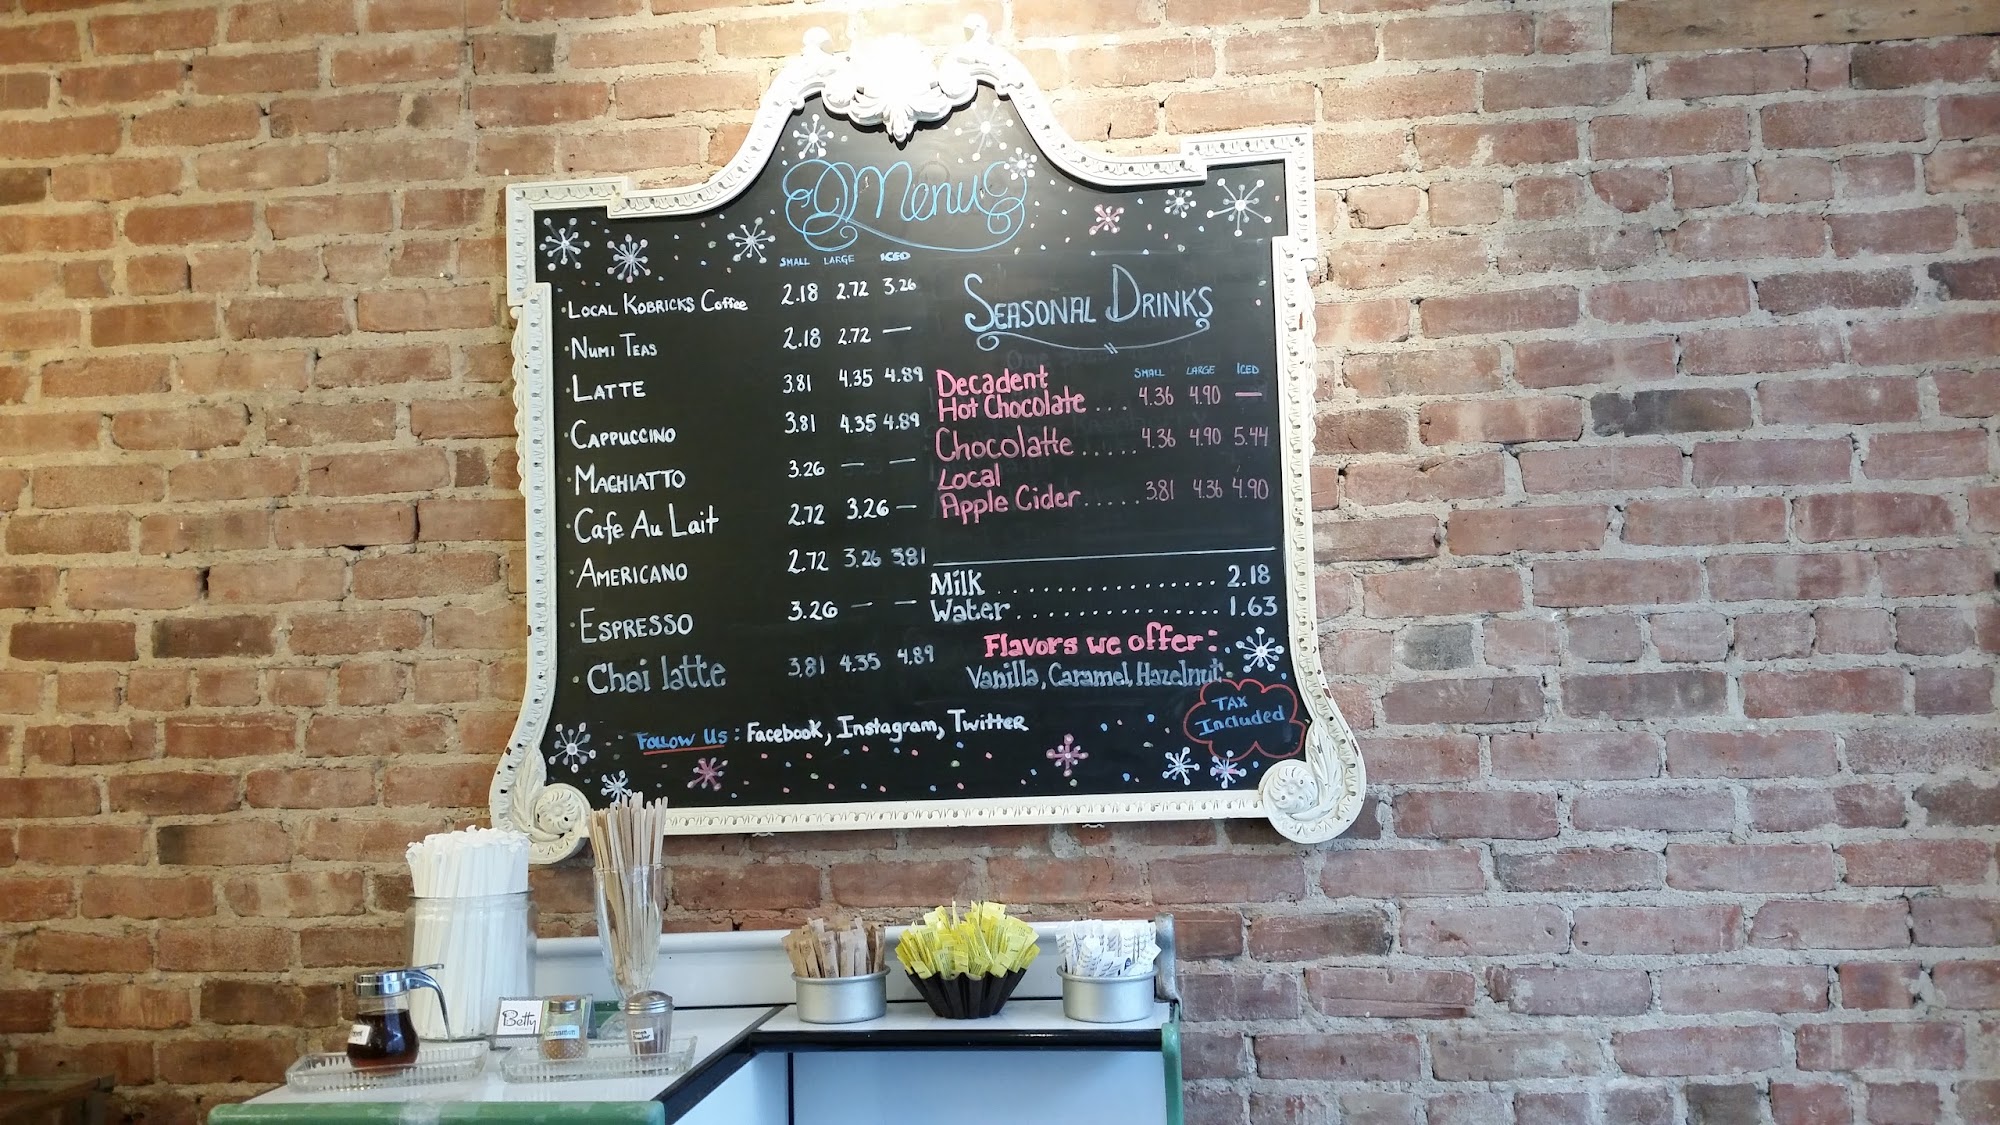 Menu
SMALL LARGE ICED
·LOCAL KOBRICKS Coffee 2.18 2.72 3.26
·NUMI TEAS 2.18 2.72 —
·LATTE 3.81 4.35 4.89
·CAPPUCCINO 3.81 4.35 4.89
·MACHIATTO 3.26 — —
·Cafe Au Lait 2.72 3.26 —
·AMERICANO 2.72 3.26 3.81
·ESPRESSO 3.26 — —
·Chai latte 3.81 4.35 4.89
SEASONAL DRINKS
SMALL LARGE ICED
Decadent
Hot Chocolate .... 4.36 4.90 —
Chocolatte ..... 4.36 4.90 5.44
Local
Apple Cider ..... 3.81 4.36 4.90
Milk ................ 2.18
Water ............... 1.63
Flavors we offer:
Vanilla, Caramel, Hazelnut
TAX
Included
Follow Us: Facebook, Instagram, Twitter
Betty
Cinnamon